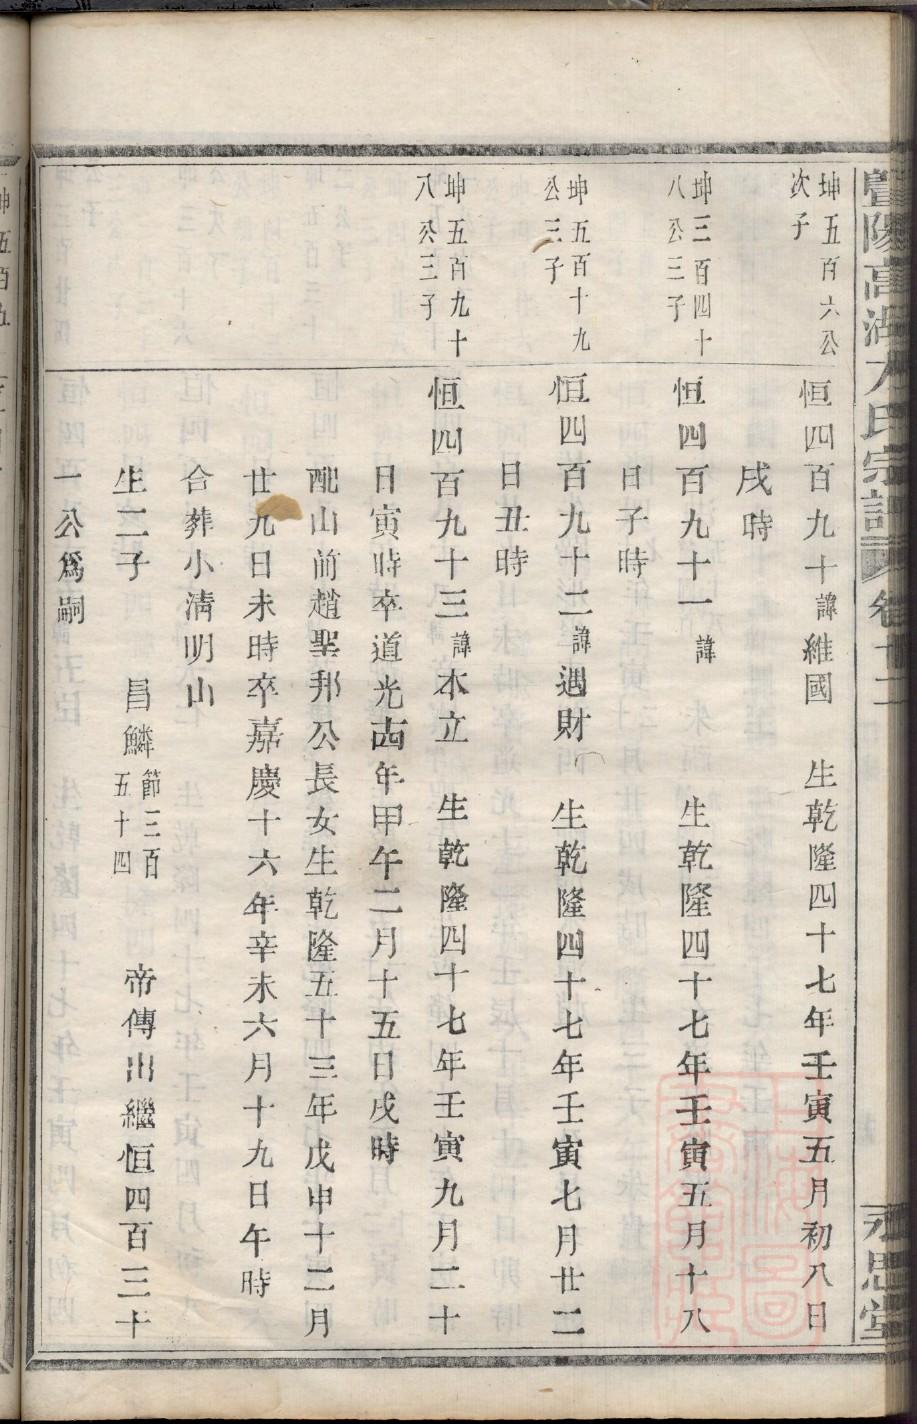 暨陽高湖方氏宗譜 卷十二 永思堂
坤五百六公
次子
恒四百九十諱維國 生乾隆四十七年壬寅五月初八日
戌時
坤三百四十
八公三子
恒四百九十一諱 生乾隆四十七年壬寅五月十八
日子時
坤五百十九
公三子
恒四百九十二諱遇財 生乾隆四十七年壬寅七月廿二
日丑時
坤五百九十
八公三子
恒四百九十三諱本立 生乾隆四十七年壬寅九月二十
日寅時卒道光十四年甲午二月十五日戌時
配山前趙聖邦公長女生乾隆五十三年戊申十二月
廿九日未時卒嘉慶十六年辛未六月十九日午時
合葬小清明山
生二子 昌鱗節三百五十四 帝傳出繼恒四百三十
一公爲嗣